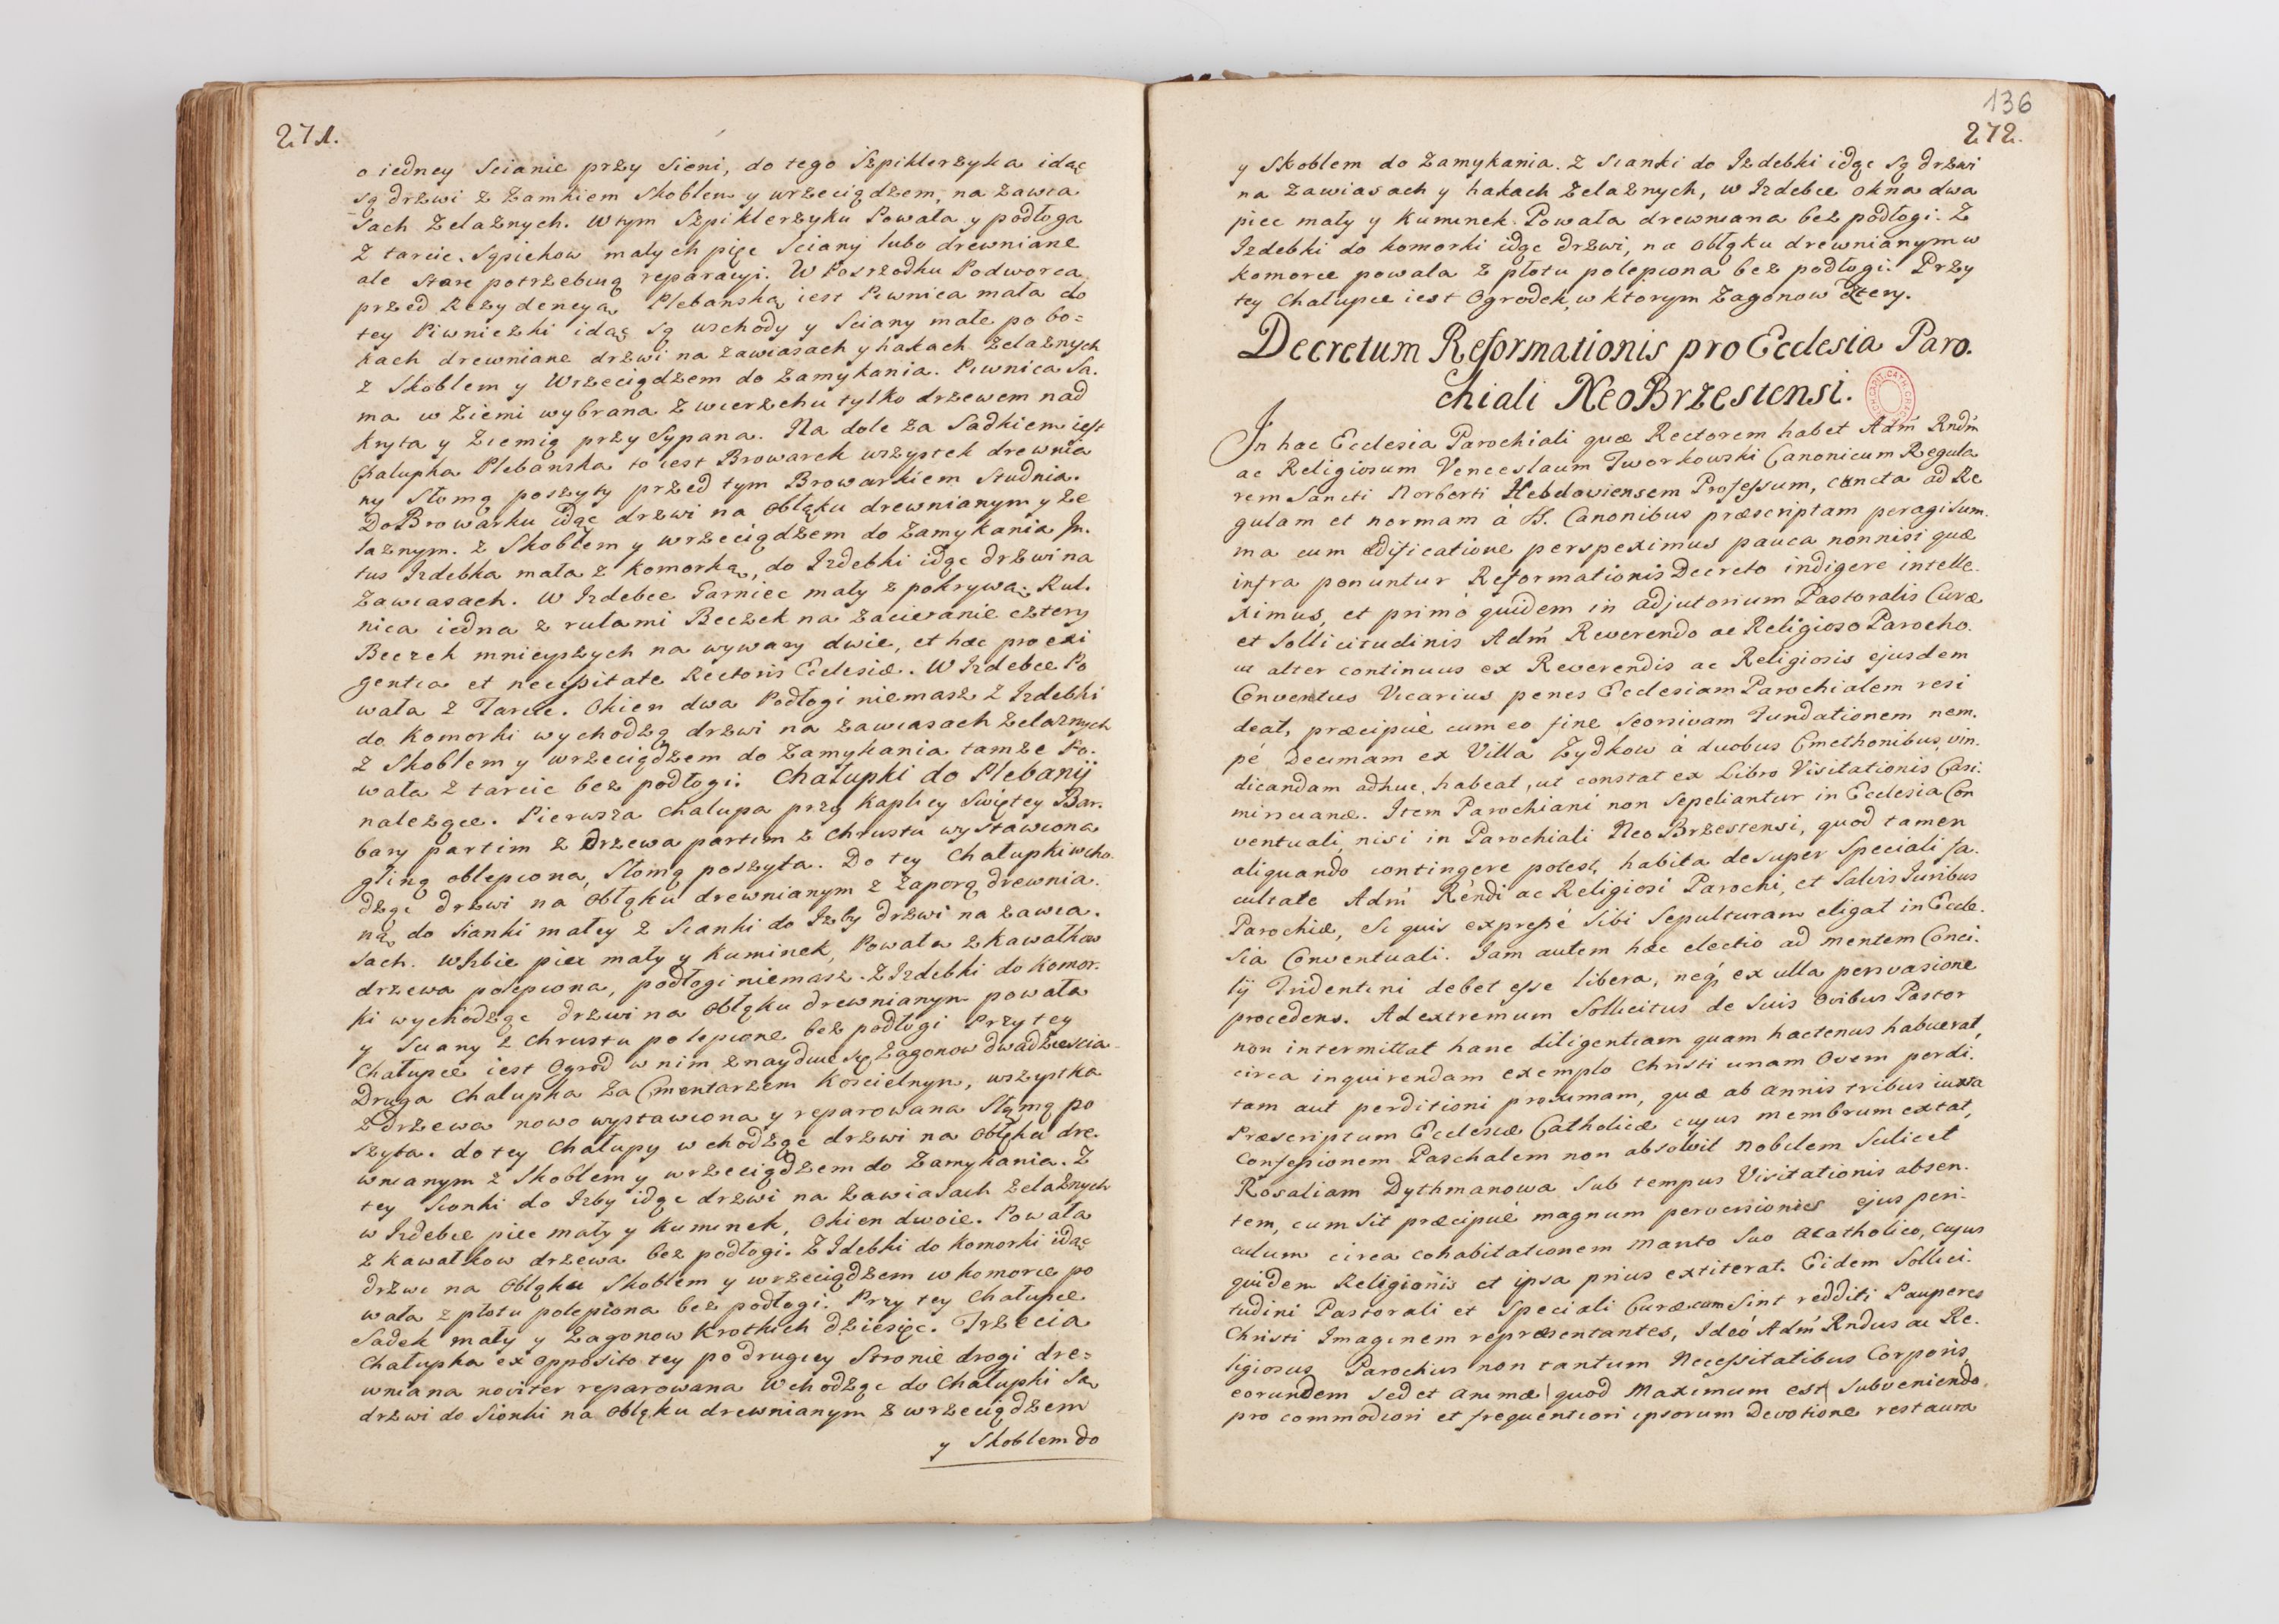 271.
o iedney Scianie przy Sieni, do tego Szpiklerzyka idąc
są drzwi z Zamkiem Skoblem y wrzeciądzem, na zawia
sach Zelaznych. W tym Szpiklerzyku Powała y podłoga
z tarcic, Sąsiekow małych pięc Sciany lubo drewniane
ale Stare potrzebuią reparacyi. W Posrzodku Podworca
przed Rezydencyą Plebanską iest Piwnica mała do
tey Piwniczki idąc są wschody y Sciany małe po bo=
kach drewniane drzwi na zawiasach y hakach Zelaznych
z Skoblem y Wrzeciądzem do Zamykania. Piwnica Sa.
ma w Ziemi wybrana z wierzchu tylko drzewem nad
kryta y Ziemią przy Sypana. Na dole za Sadkiem iest
Chałupka Plebanska to iest Browarek wszystek drewnia
ny Słomą poszyty przed tym Browarkiem Studnia.
Do Browarku idąc drzwi na Obłąku drewnianym y że
laznym. z Skoblem y wrzeciądzem do Zamykania In.
tus Izdebka mała z komorką, do Izdebki idąc drzwi na
Zawiasach. W Izdebce Garniec mały z pokrywą. Rul.
nica iedna z rulami Beczek na Zacieranie cztery
Beczek mnieyszych na wywary dwie, et hæc pro exi
gentia et necessitate Rectoris Ecclesiæ. W Izdebce Po
wała z Tarcic. Okien dwa Podłogi niemasz z Izdebki
do komorki wychodzą drzwi na zawiasach Zelaznych
z Skoblem y wrzeciądzem do Zamykania tamze Po.
wała z tarcic bez podłogi. Chałupki do Plebanij
nalezące. Pierwsza Chałupa przy Kaplicy Swiętey Bar.
bary partim z Drzewa partim z Chrustu wystawiona
gliną oblepiona, Słomą poszyta. Do tey Chałupki wcho.
dząc drzwi na Obłąku drewnianym z Zaporą drewnia.
ną do Sianki małey z Scanki do Izby drzwi na Zawia.
sach. W Izbie piec mały y Kuminek, Powała z Kawałkow
drzewa polepiona, podłogi niemasz. Z Izdebki do Komor.
ki wychodząc drzwi na Obłąku drewnianym powała
y Sciany z Chrustu polepione bez podłogi Przy tey
Chałupce iest Ogrod w nim znayduie się Zagonow dwadziescia
Druga Chałupka za Cmentarzem Koscielnym, wszystka
z drzewa nowo wystawiona y reparowana Słomą po
szyta. do tey Chałupy wchodząc drzwi na Obłąku dre.
wnianym z Skoblem y wrzeciądzem do Zamykania. Z
tey Sionki do Izby idąc drzwi na Zawiasach Zelaznych
w Izdebce piec mały y Kuminek, Okien dwoie. Powała
z kawałkow drzewa bez podłogi. Z Idebki do Komorki idąc
drzwi na Obłąku Skoblem y wrzeciądzem w komorce po
wała z płotu polepiona bez podłogi. Przy tey Chałupce
Sadek mały y Zagonow Krotkich dziesięc. Trzecia
Chałupka ex opposito tey po drugiey Stronie drogi dre=
wniana noviter reparowana Wchodząc do Chałupki Są
drzwi do Sionki na Obłąku drewnianym z wrzeciądzem
y Skoblem do
136
272.
y Skoblem do Zamykania. z Scanki do Izdebki idąc są drzwi
na Zawiasach y hakach Zelaznych, w Izdebce okna dwa
piec mały y Kuminek. Powała drewniana bez podłogi. Z
Izdebki do komorki idąc drzwi, na obłąku drewnianym w
komorce powała z płotu polepiona bez podłogi. Przy
tey Chałupce iest Ogrodek, w ktorym Zagonow cztery.
Decretum Reformationis pro Ecclesia Paro.
chiali NeoBrzestensi.
In hac Ecclesia Parochiali quæ Rectorem habet Adm̃ Rndm̃
ac Religiosum Venceslaum Tworkowski Canonicum Regula
rem Sancti Norberti Hebdoviensem Professum, cuncta ad Re
gulam et normam à SS. Canonibus præscriptam peragi Sum.
ma cum ædificatione perspeximus pauca nonnisi quæ
infra ponuntur Reformationis Decreto indigere intelle.
ximus, et primò quidem in adjutorium Pastoralis Curæ
et Sollicitudinis Adm̃ Reverendo ac Religioso Parocho.
ut alter continuus ex Reverendis ac Religiosis ejusdem
Conventus Vicarius penes Ecclesiam Parochialem resi
deat, præcipuè cum eo fine Seorsivam Fundationem nem.
pé Decimam ex Villa Zydkow à duobus Cmethonibus, vin.
dicandam adhuc, habeat, ut constat ex Libro Visitationis Casi.
mirianæ. Item Parochiani non Sepeliantur in Ecclesia Con
ventuali, nisi in Parochiali Neo Brzestensi, quod tamen
aliquando contingere potest, habita desuper Speciali fa.
cultate Adm̃ Rendi ac Religiosi Parochi, et Salvis Iuribus
Parochiæ, Si quis expressé Sibi Sepulturam eligat in Eccle.
Sia Conventuali. Iam autem hæc electio ad mentem Conci.
lij Tridentini debet esse libera, neq́ ex ulla persvasione
procedens. Ad extremum Sollicitus de Suis Ovibus Pastor
non intermittat hanc diligentiam quam hactenus habuerat,
circa inquirendam exemplo Christi unam Ovem perdi.
tam aut perditioni proximam, quæ ab annis tribus iuxta
Præscriptum Ecclesiæ Catholicæ cujus membrum extat,
Confessionem Paschalem non absolvit Nobilem Scilicet
Rosaliam Dythmanowa Sub tempus Visitationis absen.
tem, cum Sit præcipuè magnum perversionis ejus peri.
culum circa cohabitationem Marito Suo Acatholico, cujus
quidem Religionis et ipsa prius extiterat. Eidem Sollici.
tudini Pastorali et Speciali Curæ cum Sint redditi Pauperes
Christi Imaginem repræsentantes, Ideó Adm̃ Rndus ac Re.
ligiosus Parochus non tantum Necessitatibus Corporis
eorundem Sed et animæ quod Maximum est Subveniendo.
pro commodiori et frequentiori ipsorum Devotione restaura